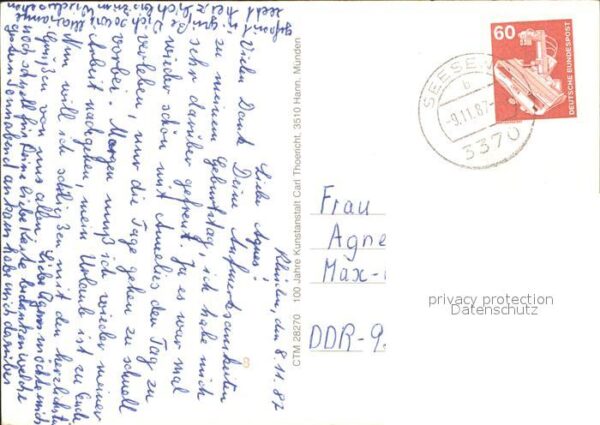 Rhüden, den 8.11.87
Liebe Agnes!
Vielen Dank Deine Aufmerksamkeiten
zu meinem Geburtstag, ich habe mich
sehr darüber gefreut. Ja es war mal
wieder schön mit Annelies den Tag zu
verleben, nur die Tage gehen zu schnell
vorbei. Morgen muß ich wieder meiner
Arbeit nachgehen, mein Urlaub ist zu Ende
Nun will ich schließen mit den herzlichsten
Grüßen von uns allen
Liebe Agnes möchte mich
noch schnell für Deine liebe Karte bedanken welche
gestern Sonnabend ankam habe mich darüber
gefreut
recht
CTM 28270 100 Jahre Kunstanstalt Carl Thoericht, 3510 Hann. Münden
60
DEUTSCHE BUNDESPOST
SEESE
b
-9.11.87-
3370
Frau
Agne
Max-
DDR-9
privacy protection
Datenschutz